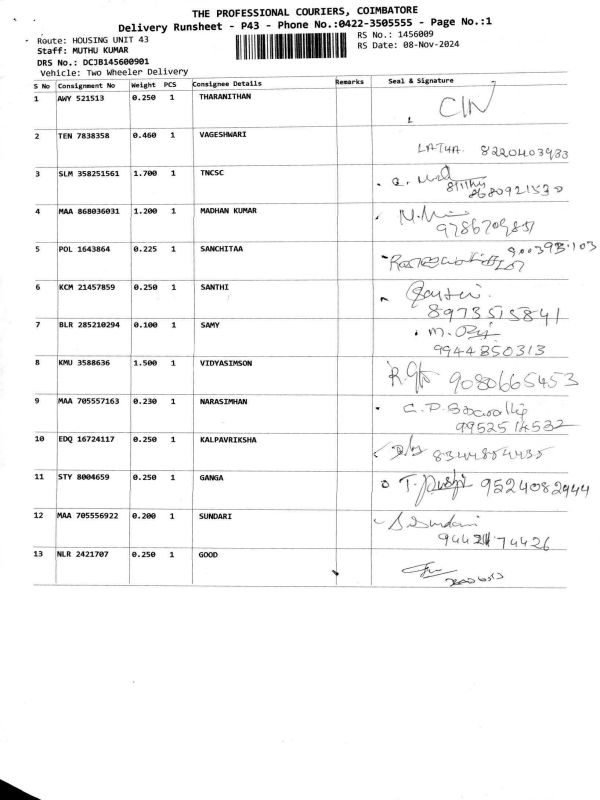 THE PROFESSIONAL COURIERS, COIMBATORE
Delivery Runsheet - P43 - Phone No.:0422-3505555 - Page No.:1
Route: HOUSING UNIT 43
RS No.: 1456009
Staff: MUTHU KUMAR
RS Date: 08-Nov-2024
DRS No.: DCJB145600901
Vehicle: Two Wheeler Delivery
S No Consignment No Weight PCS Consignee Details Remarks Seal & Signature
1 AWY 521513 0.250 1 THARANITHAN
2 TEN 7838358 0.460 1 VAGESHWARI LATHA. 8220403933
3 SLM 358251561 1.700 1 TNCSC 8680921530
4 MAA 868036031 1.200 1 MADHAN KUMAR
5 POL 1643864 0.225 1 SANCHITAA
6 KCM 21457859 0.250 1 SANTHI
8973515841
7 BLR 285210294 0.100 1 SAMY
9944850313
8 KMU 3588636 1.500 1 VIDYASIMSON 9080665453
9 MAA 705557163 0.230 1 NARASIMHAN
9952514532
10 EDQ 16724117 0.250 1 KALPAVRIKSHA
11 STY 8004659 0.250 1 GANGA 9524082944
12 MAA 705556922 0.200 1 SUNDARI
13 NLR 2421707 0.250 1 GOOD